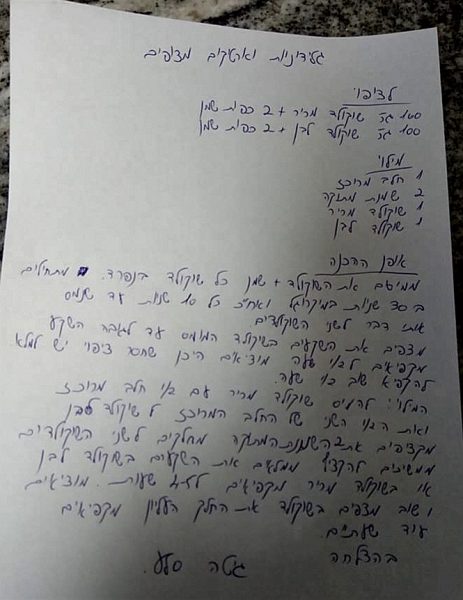 גלידיניות וארטיקים מצופים
לציפוי
100 גר שוקולד מריר + 2 כפות שמן
100 גר שוקולד לבן + 2 כפות שמן
מילוי
1 חלב מרוכז
2 שמנות מתוקה
1 שוקולד מריר
1 שוקולד לבן
אופן ההכנה
ממיסם את השוקולד + שמן כל שוקולד בנפרד. מתחילים
ב 30 שניות במיקרוגל ואח"כ כל 10 שניות עד שנמס
אותו דבר לשני השוקולדים
מצפים את השקעים בשוקולד המומס עד לגובה השקע
מקפיאים לחצי שעה מוציאים היכן שחסר ציפוי יש למלא
להקפיא שוב כחצי שעה.
המילוי: להמיס שוקולד מריר עם חצי חלב מרוכז
ואת החצי השני של החלב המרוכז ל שוקולד לבן
מקציפים את 2 השמנות המתוקה מחלקים לשני השוקולדים
ממשיכים להקציף ממלאים את השקעים בשוקולד לבן
או בשוקולד מריר מקפיאים ל 4-5 שעות. מוציאים
ושוב מצפים בשוקולד את החלק העליון מקפיאים
עוד שעתיים.
בהצלחה
גטה סלע.